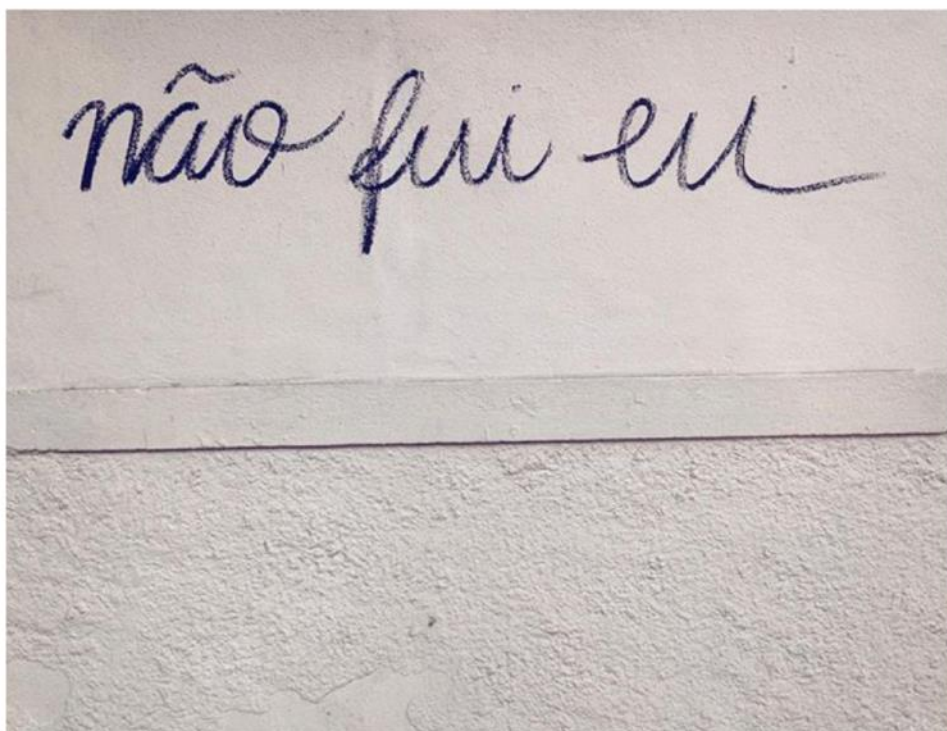 não fui eu